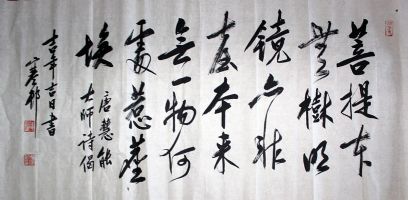 菩提本
無樹明
镜亦非
臺本来
無一物何
處惹塵
埃
唐慧能
大师诗偈
吉年吉日書